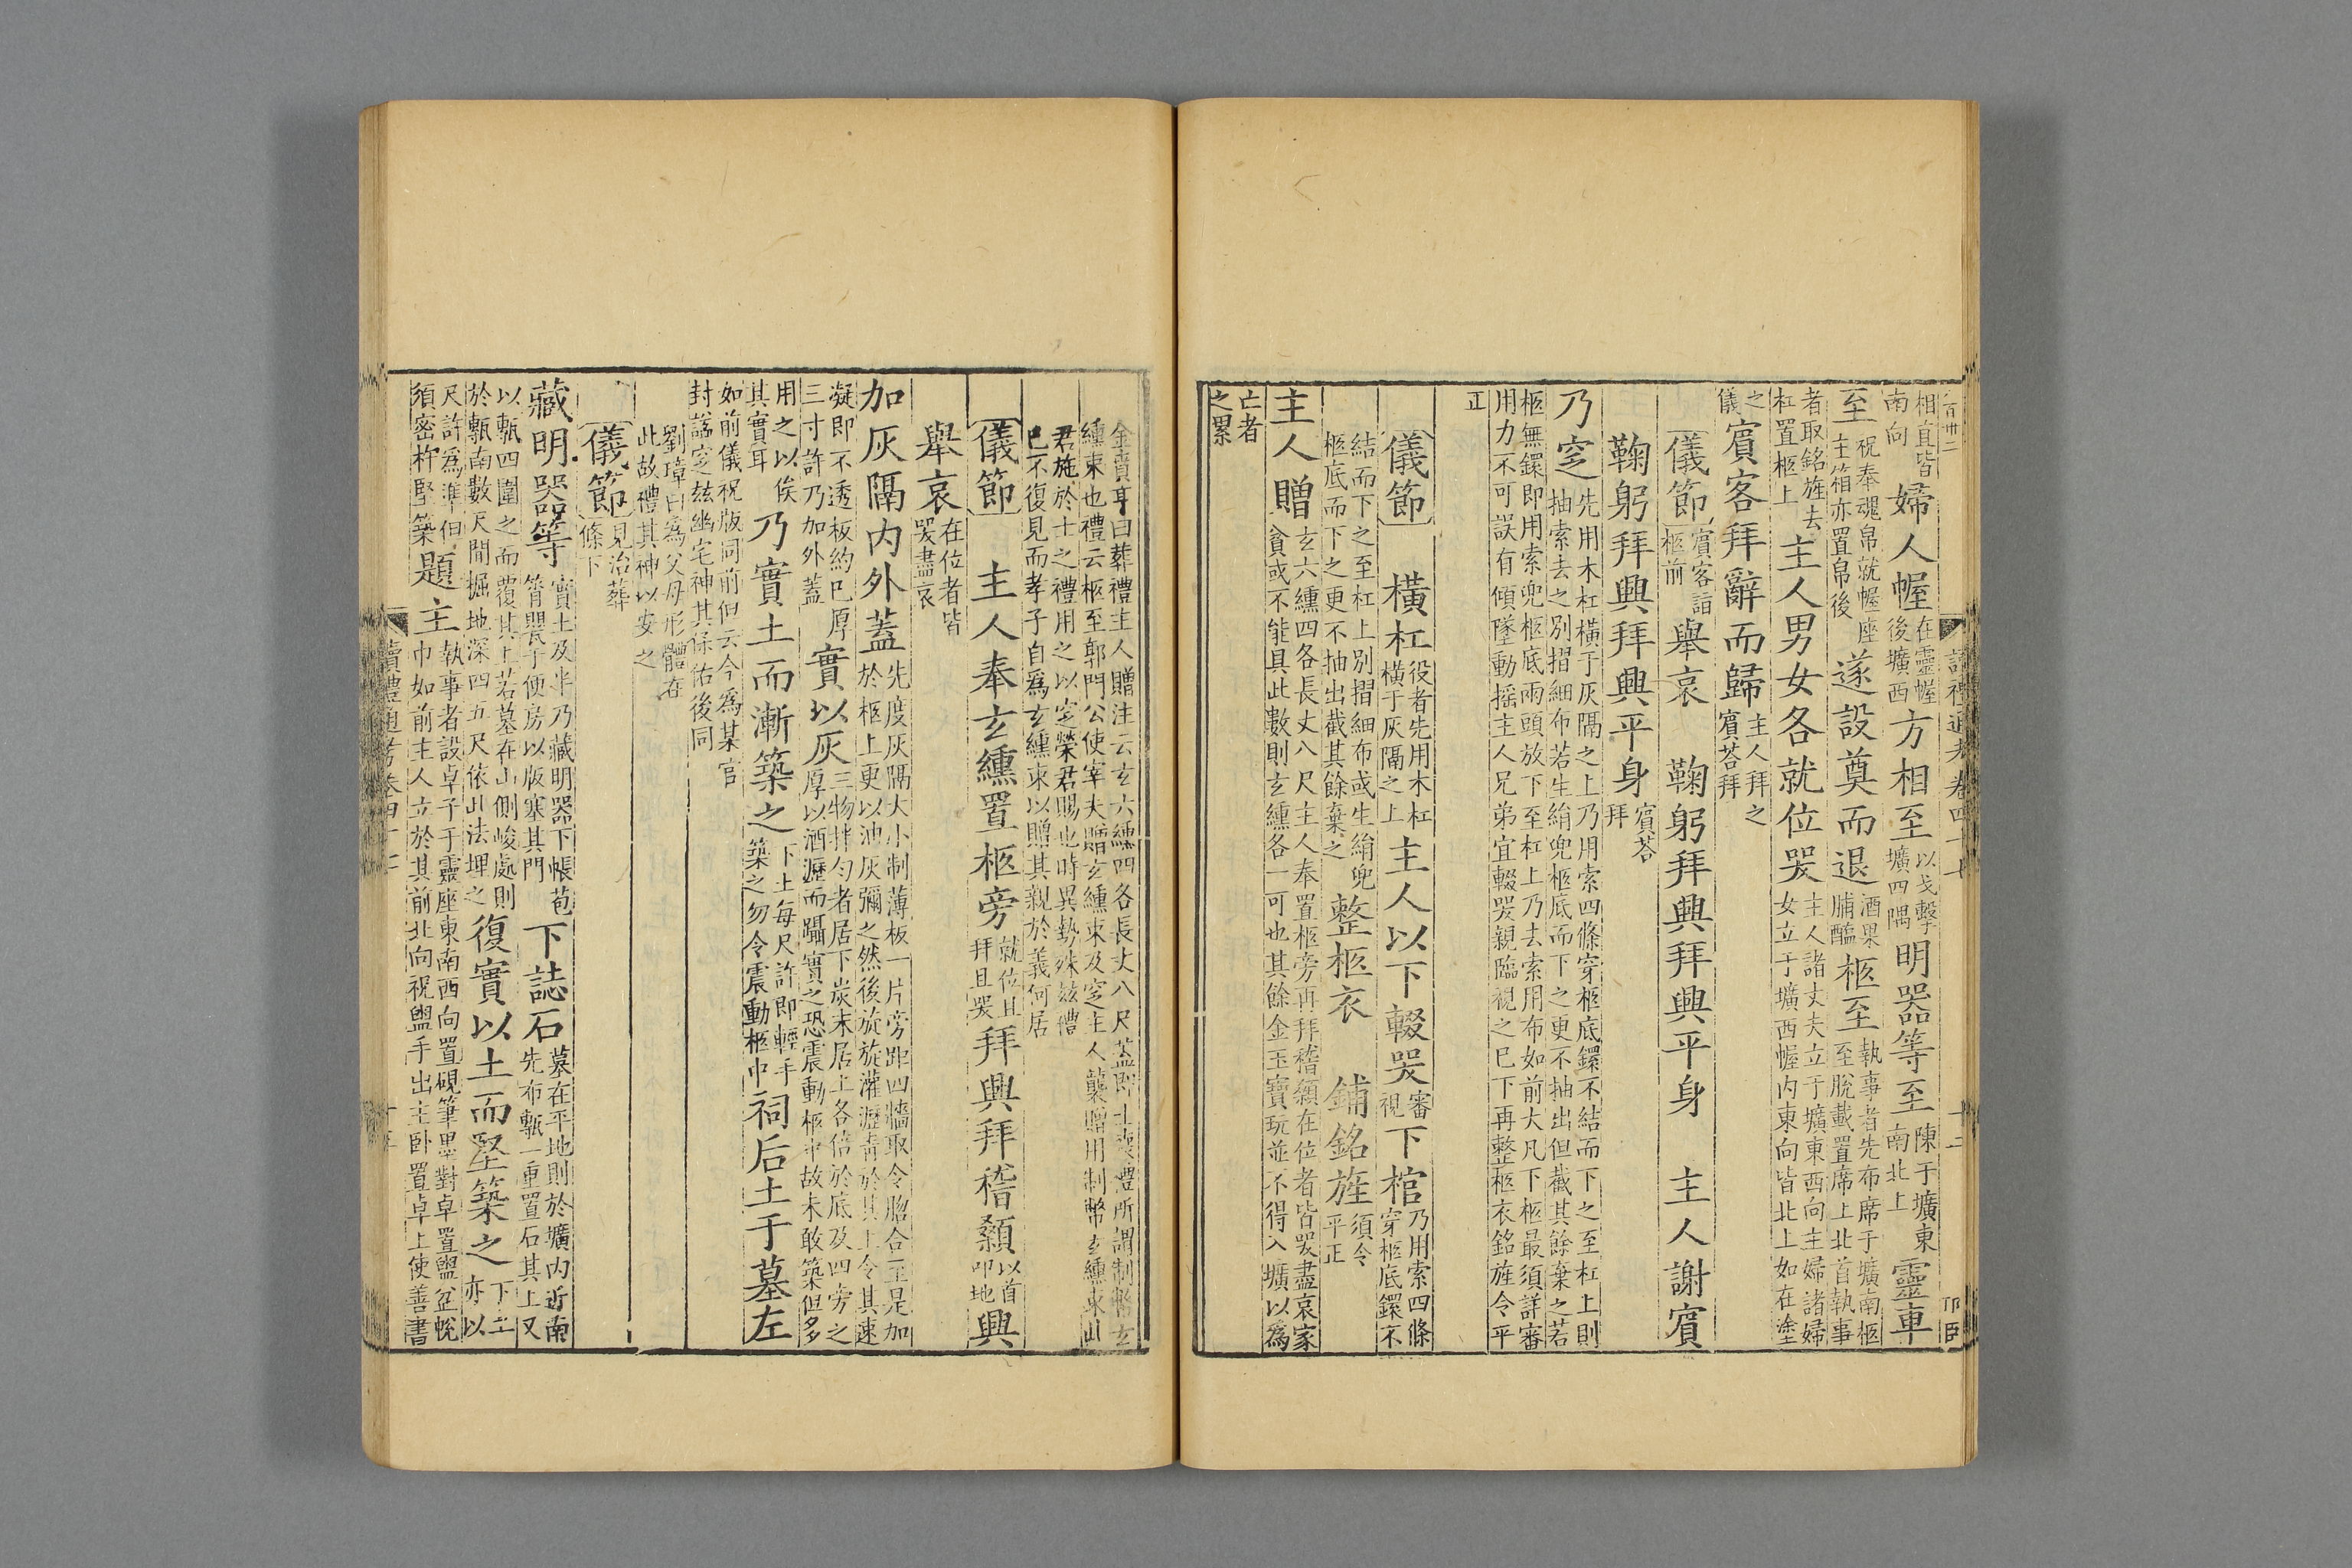 相直皆南向婦人幄在靈幄後壙西方相至以戈擊壙四隅明器等至陳于壙東南北上靈車
至祝奉魂帛就幄座主箱亦置帛後遂設奠而退酒果脯醢柩至執事者先布席于壙南柩至脫載置席上北首執事
者取銘旌去杠置柩上主人男女各就位哭主人諸丈夫立于壙東西向主婦諸婦女立于壙西幄内東向皆北上如在塗
之儀賓客拜辭而歸主人拜之賓荅拜
儀節賓客詣柩前舉哀 鞠躬拜興拜興平身 主人謝賓
鞠躬拜興拜興平身賓荅拜
乃窆先用木杠橫于灰隔之上乃用索四條穿柩底鐶不結而下之至杠上則抽索去之别摺細布若生絹兜柩底而下之更不抽出但截其餘棄之若
柩無鐶即用索兜柩底兩頭放下至杠上乃去索用布如前大凡下柩最須詳審用力不可誤有傾墜動搖主人兄弟宜輟哭親臨視之巳下再整柩衣銘旌令平
正
儀節 橫杠役者先用木杠橫于灰隔之上主人以下輟哭審視下棺乃用索四條穿柩底鐶不
結而下之至杠上别摺細布或生絹兜柩底而下之更不抽出截其餘棄之整柩衣 鋪銘旌須令平正
主人贈玄六纁四各長丈八尺主人奉置柩旁再拜稽顙在位者皆哭盡哀家貧或不能具此數則玄纁各一可也其餘金玉寶玩並不得入壙以爲
亡者之累
金賁亨曰葬禮主人贈注云玄六纁四各長丈八尺葢即士喪禮所謂制幣玄纁束也禮云柩至郭門公使宰夫贈玄纁束及窆主人襲贈用制幣玄纁束山
君施於士之禮用之以窆榮君賜也時異勢殊兹禮巳不復見而孝子自爲玄纁束以贈其親於義何居
儀節 主人奉玄纁置柩旁就位且拜且哭拜興拜稽顙以首叩地興
舉哀在位者皆哭盡哀
加灰隔内外蓋先度灰隔大小制薄板一片旁距四牆取令脗合至是加於柩上更以油灰彌之然後旋旋灌瀝青於其上令其速
凝即不透板約巳厚三寸許乃加外蓋實以灰三物拌勻者居下炭末居上各倍於底及四旁之厚以酒灑而躡實之恐震動柩中故未敢築但多
用之以俟其實耳乃實土而漸築之下土每尺許即輕手築之勿令震動柩中祠后土于墓左
如前儀祝版同前但云今爲某官封謚窆兹幽宅神其保佑後同
劉璋曰爲父母形體在此故禮其神以安之
儀節見治葬條下
藏明器等實土及半乃藏明器下帳苞筲罌于便房以版塞其門下誌石墓在平地則於壙内近南先布甎一重置石其上又
以甎四圍之而覆其上若墓在山側峻處則於甎南數尺間掘地深四五尺依此法埋之復實以土而堅築之下土亦以
尺許爲準但須密杵堅築題主執事者設卓子于靈座東南西向置硯筆墨對卓置盥盆帨巾如前主人立於其前北向祝盥手出主卧置卓上使善書